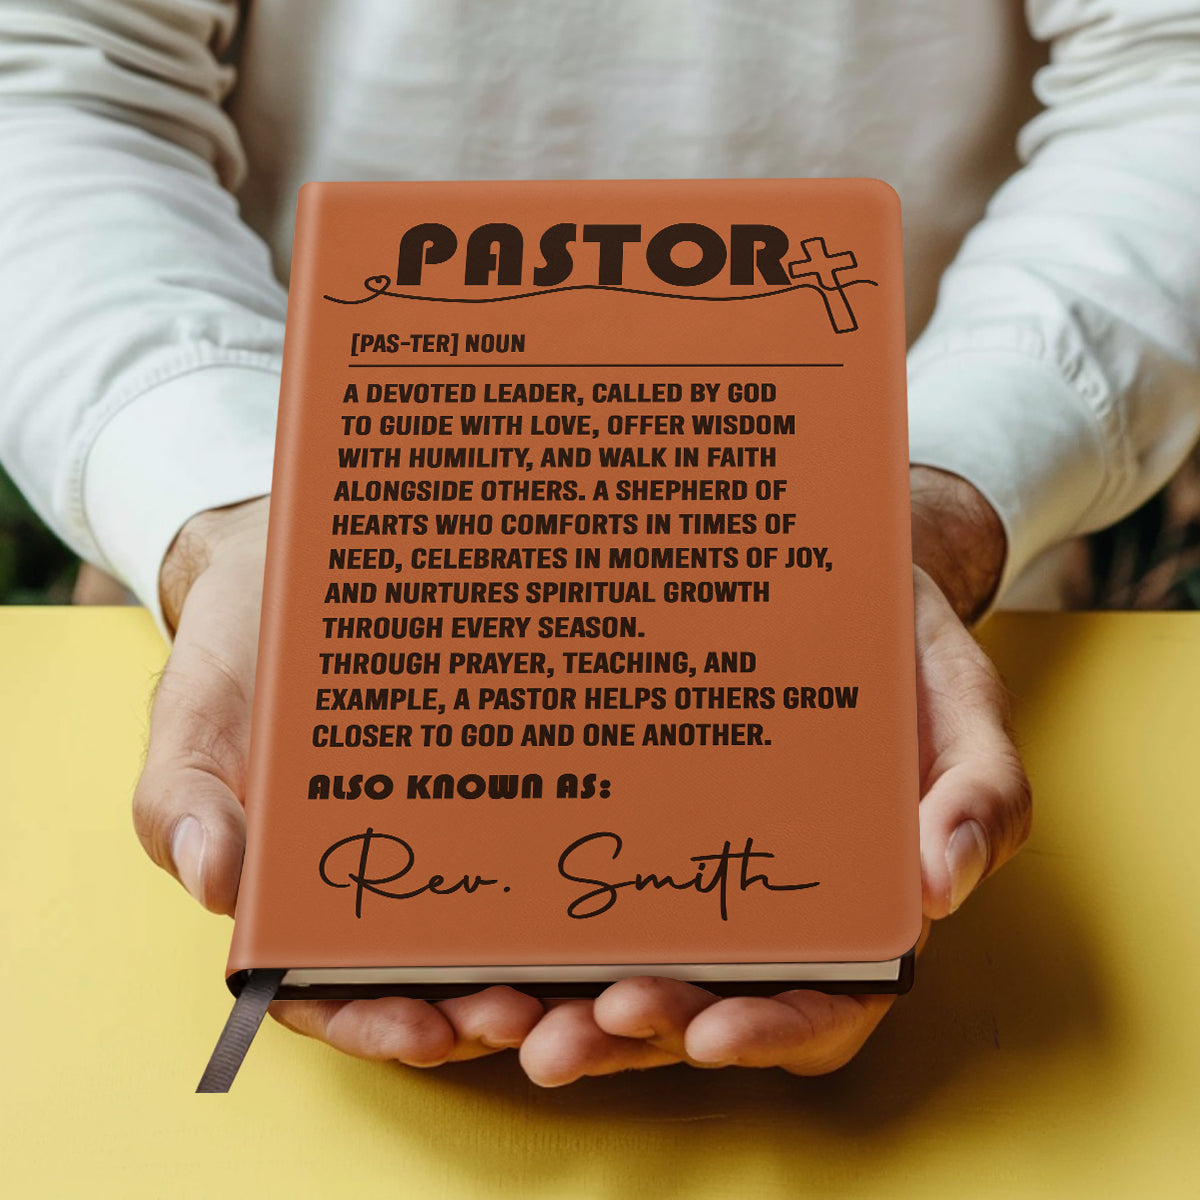 PASTOR
[PAS-TER] NOUN
A DEVOTED LEADER, CALLED BY GOD
TO GUIDE WITH LOVE, OFFER WISDOM
WITH HUMILITY, AND WALK IN FAITH
ALONGSIDE OTHERS. A SHEPHERD OF
HEARTS WHO COMFORTS IN TIMES OF
NEED, CELEBRATES IN MOMENTS OF JOY,
AND NURTURES SPIRITUAL GROWTH
THROUGH EVERY SEASON.
THROUGH PRAYER, TEACHING, AND
EXAMPLE, A PASTOR HELPS OTHERS GROW
CLOSER TO GOD AND ONE ANOTHER.
ALSO KNOWN AS:
Rev. Smith